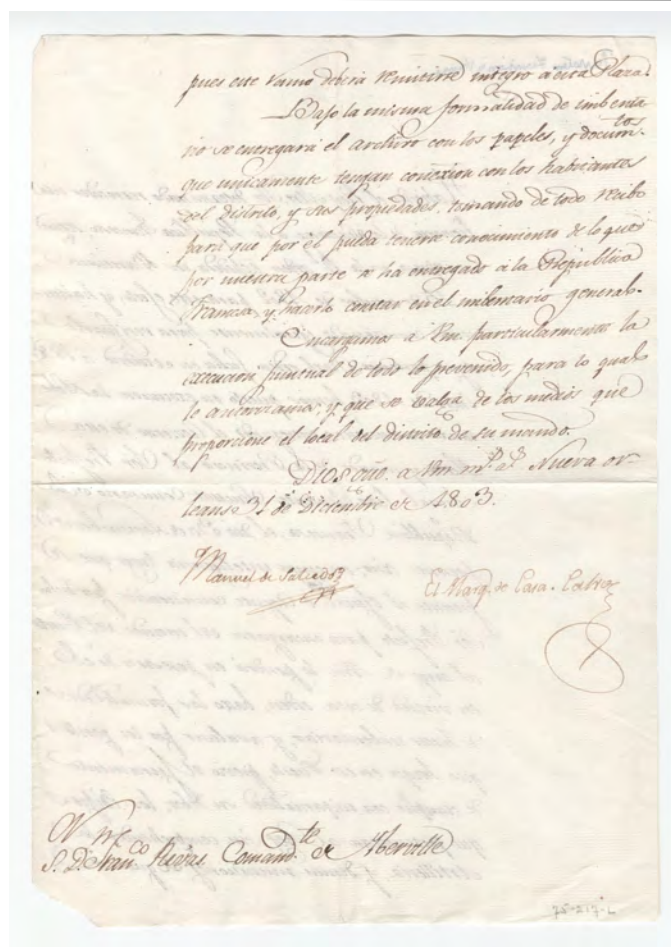 pues este ramo deberá remitirse integro a esta Plaza.
Bajo la misma formalidad de imbenta
rio se entregará el archivo con los papeles, y docum.tos
que unicamente tengan conexion con los habitantes
del distrito, y sus propiedades, tomando de todo recibo
para que por él pueda tenerse conocimiento de lo que
por nuestra parte se ha entregado a la Republica
Francesa y hacerlo constar en el imbentario general.
Encargamos a Vm particularmente la
execucion puntual de todo lo prevenido, para lo qual
le autorizamos, y que se valga de los medios que
proporcione el local del distrito de su mando.
Dios gue. a Vm m.s a.s Nueva or-
leans 31 de Diciembre de 1803.
Manuel de Salcedo
El Marq.s de Casa-Calvo
S. D. Fran.co Rivas Comand.te de Iberville
75-217-L